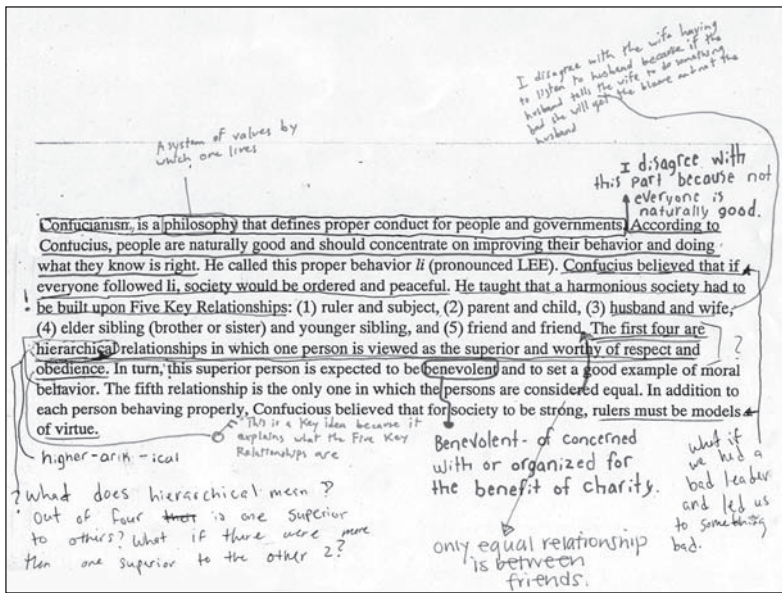 I disagree with the wife having
to listen to husband because if the
husband tells the wife to do something
bad she will get the blame and not the
husband
A system of values by
which one lives
I disagree with
this part because not
everyone is
naturally good.
Confucianism is a philosophy that defines proper conduct for people and governments. According to
Confucius, people are naturally good and should concentrate on improving their behavior and doing
what they know is right. He called this proper behavior li (pronounced LEE). Confucius believed that if
everyone followed li, society would be ordered and peaceful. He taught that a harmonious society had to
! be built upon Five Key Relationships: (1) ruler and subject, (2) parent and child, (3) husband and wife,
(4) elder sibling (brother or sister) and younger sibling, and (5) friend and friend. The first four are
hierarchical relationships in which one person is viewed as the superior and worthy of respect and ?
obedience. In turn, this superior person is expected to be benevolent and to set a good example of moral
behavior. The fifth relationship is the only one in which the persons are considered equal. In addition to
each person behaving properly, Confucious believed that for society to be strong, rulers must be models
of virtue.
This is a Key idea because it
explains what the Five Key
Relationships are
higher-arik-ical
? What does hierarchical mean?
Out of four is one superior
to others? What if there were more
then one superior to the other 2?
Benevolent- of concerned
with or organized for
the benefit of charity.
only equal relationship
is between
friends.
what if
we had a
bad leader
and led us
to something
bad.